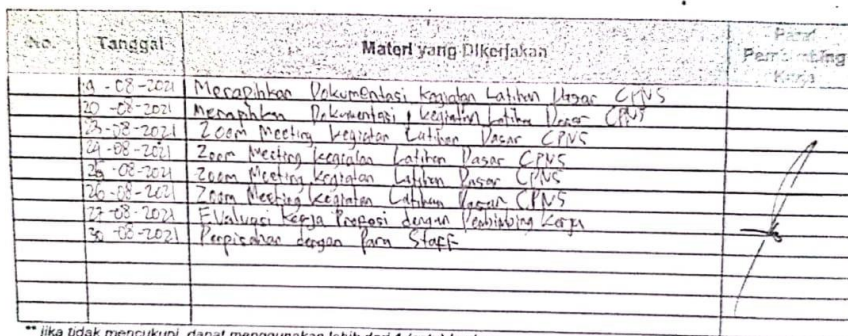 No. Tanggal Materi yang Dikerjakan Paraf Pembimbing Kerja
19-08-2021 Merapihkan Dokumentasi kegiatan Latihan Dasar CPNS
20-08-2021 Merapihkan Dokumentasi kegiatan Latihan Dasar CPNS
23-08-2021 Zoom Meeting kegiatan Latihan Dasar CPNS
24-08-2021 Zoom Meeting kegiatan Latihan Dasar CPNS
25-08-2021 Zoom Meeting kegiatan Latihan Dasar CPNS
26-08-2021 Zoom Meeting kegiatan Latihan Dasar CPNS
27-08-2021 Evaluasi kerja dengan Pembimbing kerja
30-08-2021 Perpisahan dengan Para Staff
** jika tidak mencukupi, dapat menggunakan lebih dari 1